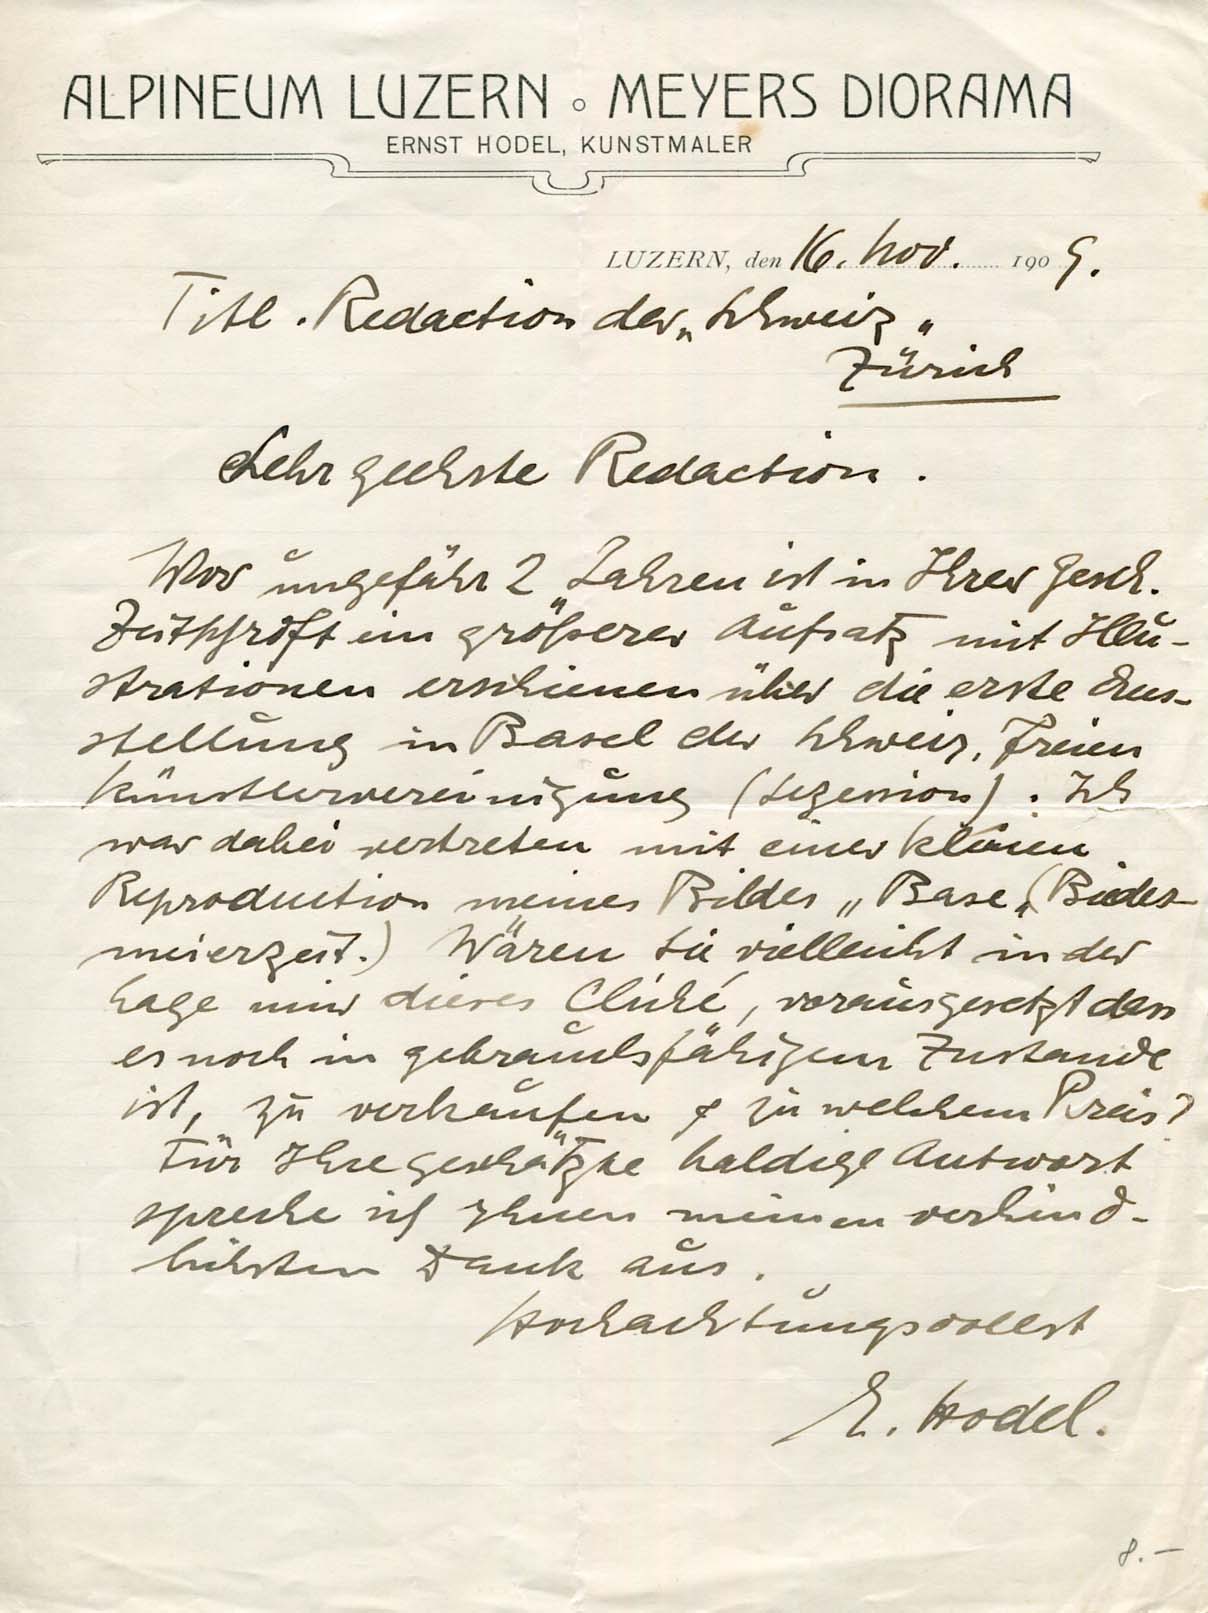 ALPINEUM LUZERN ∘ MEYERS DIORAMA
ERNST HODEL, KUNSTMALER
LUZERN, den 16. Nov. 1909.
Titl. Redaction der „Schweiz"
Zürich
Sehr geehrte Redaction.
Vor ungefähr 2 Jahren ist in Ihrer gesch.
Zeitschrift ein größerer Aufsatz mit Illu-
strationen erschienen über die erste Aus-
stellung in Basel der Schweiz. Freien
Künstlervereinigung (Sezession). Ich
war dabei vertreten mit einer kleinen
Reproduction meines Bildes „Base" (Bieder-
meierzeit.) Wären Sie vielleicht in der
Lage mir dieses Cliché, vorausgesetzt dass
es noch in gebrauchsfähigem Zustande
ist, zu verkaufen & zu welchem Preis?
Für Ihre geschätzte baldige Antwort
spreche ich Ihnen meinen verbind-
lichsten Dank aus.
Hochachtungsvollst
E. Hodel.
8.–